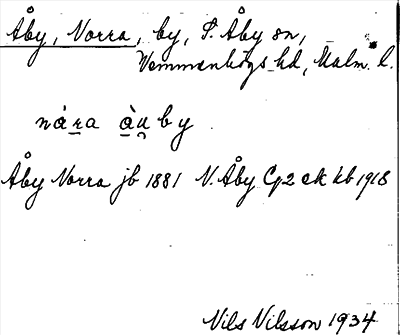 Åby, Norra, by, S. Åby sn,
Vemmenhögs hd, Malm. l.
nàra àu by
Åby Norra jb 1881 N. Åby Cg2 ek kb 1918
Nils Nilsson 1934